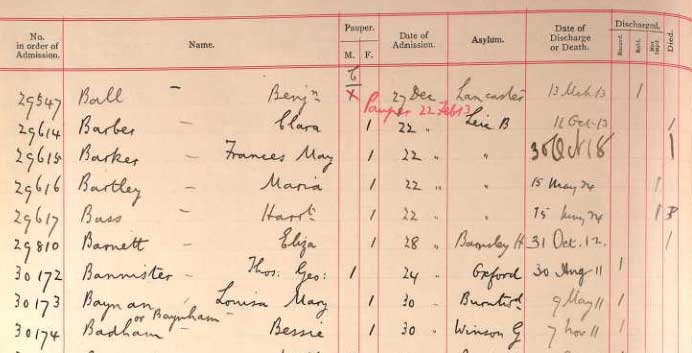 No. in order of Admission. Name. Pauper. M. F. Date of Admission. Asylum. Date of Discharge or Death. Discharged. Recovd. Reld. Not Impd. Died.
29547 Ball — Benjn X 27 Dec Lancaster 13 Mch. 13 1
Pauper 22 Feb 13
29614 Barber — Clara 1 22 " Leic B 11 Oct. 13 1
29615 Barker — Frances May 1 22 " " 30 Oct 18 1
29616 Bartley — Maria 1 22 " " 15 May 24 1
29617 Bass — Harrt. 1 22 " " 15 24 1
29810 Barnett — Eliza 1 28 " Barnsley H 31 Oct. 12. 1
30172 Bannister — Thos: Geo: 1 24 " Oxford 30 Aug 11 1
30173 Baynan — Louisa Mary 1 30 " Burntwd 9 May 11 1
or Baynham
30174 Badham — Bessie 1 30 " Winson G 7 Nov 11 1